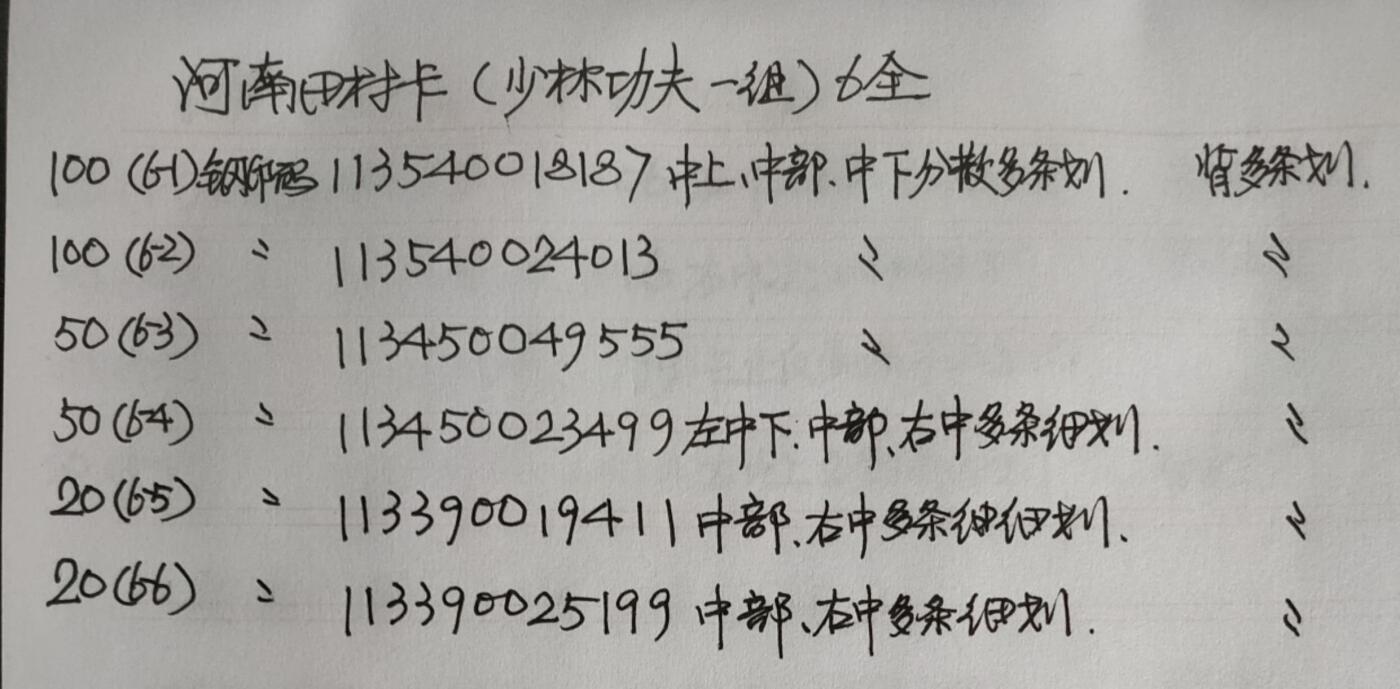 河南田村卡（少林功夫一组）6全
100（6-1）钢印码 113540018187 中上、中部、中下分散多条划. 背多条划.
100（6-2） 〃 113540024013 〃 〃
50（6-3） 〃 113450049555 〃 〃
50（6-4） 〃 113450023499 左中下、中部、右中多条细划. 〃
20（6-5） 〃 113390019411 中部、右中多条细细划. 〃
20（6-6） 〃 113390025199 中部、右中多条细划. 〃